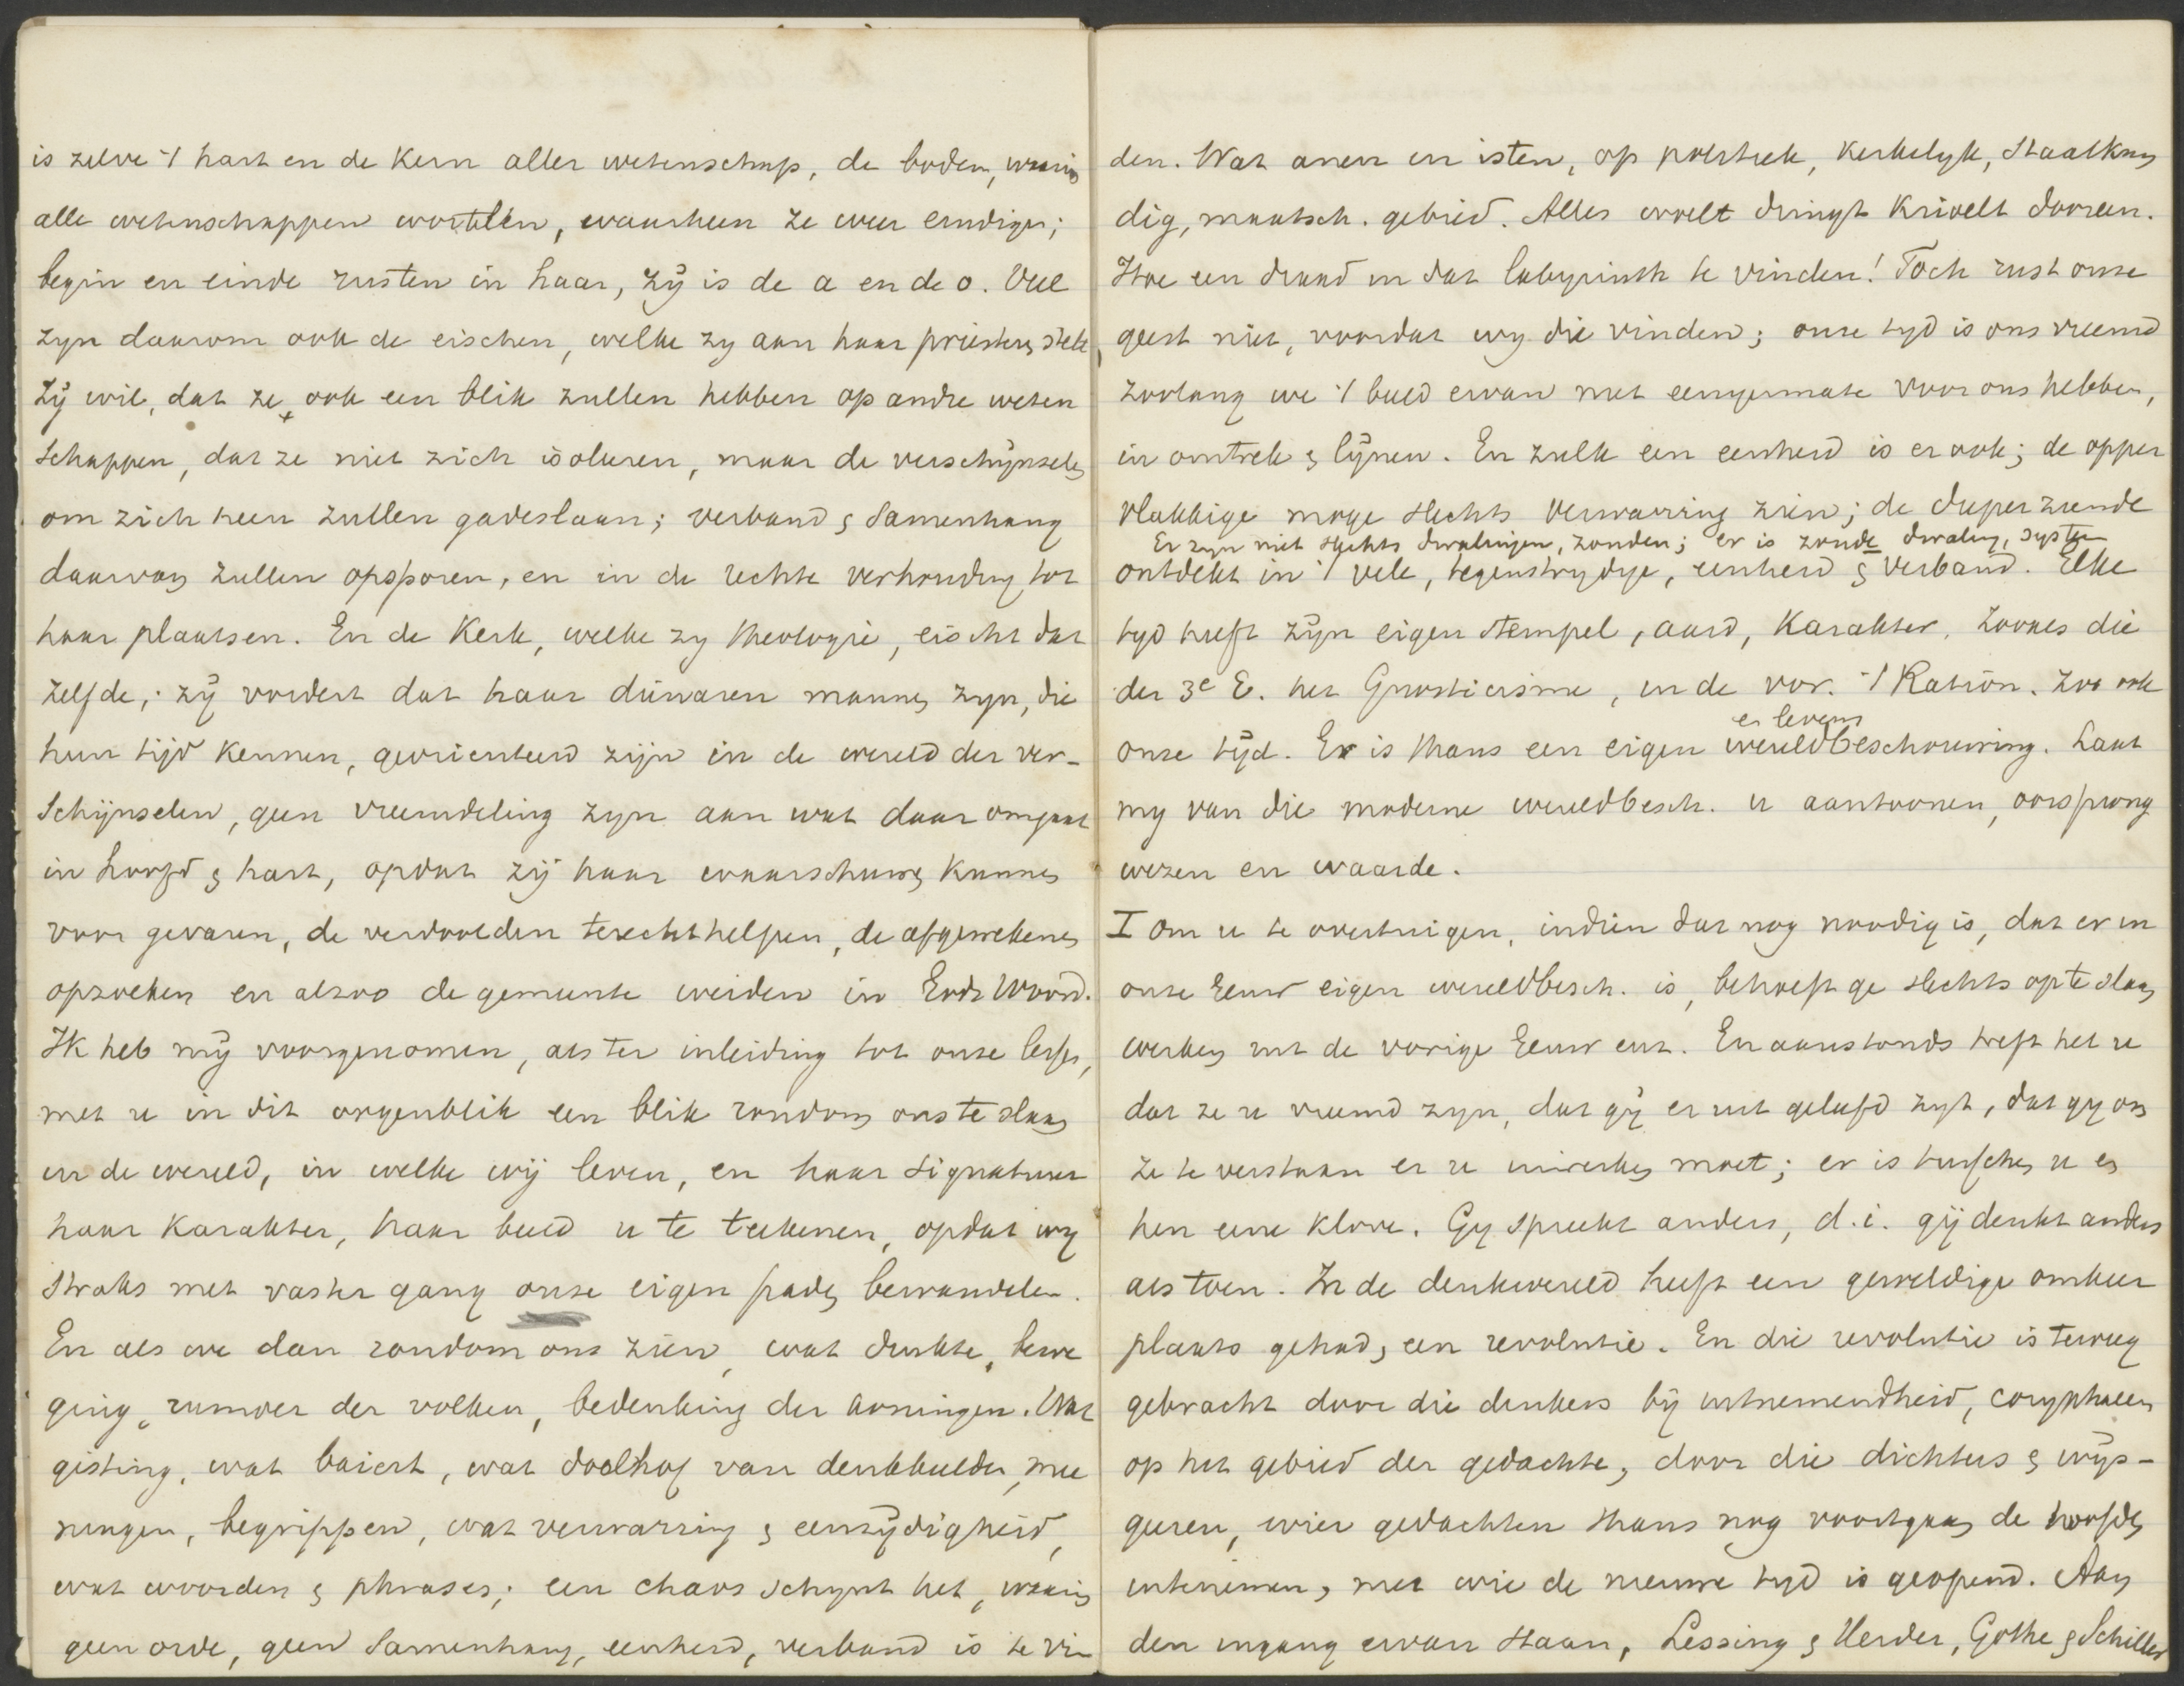 is zelve 't hart en de Kern aller wetenschap, de bodem, waarin
alle wetenschappen wortelen, waarheen ze weer eindigen;
begin en einde rusten in haar, zij is de a en de o. Veel
zyn daarom ook de eischen, welke zy aan haar priesters stelt,
Zij wil, dat ze ook een blik zullen hebben op andre weten
schappen, dat ze niet zich isoleren, maar de verschijnselen
om zich heen zullen gadeslaan; verband & samenhang
daarvan zullen opsporen, en in de rechte verhouding tot
haar plaatsen. En de Kerk, welke zy theologie, eischt dat
zelfde; zij vordert dat haar dienaren mannen zyn, die
hun tijd kennen, georienteerd zijn in de wereld der ver-
schijnselen, geen vreemdeling zyn aan wat daar omgaat
in hoofd & hart, opdat zij haar waarschuwen kunnen
voor gevaren, de verdoolden terechthelpen, de afgewekenen
opzoeken en alzoo de gemeente weiden in Gods Woord.
Ik heb mij voorgenomen, als ter inleiding tot onze lessen,
met u in dit oogenblik een blik rondom ons te slaan
in de wereld, in welke wij leven, en haar signatuur
haar karakter, haar beeld u te teekenen, opdat wy
straks met vaster gang onze eigen paden bewandelen.
En als we dan rondom ons zien, wat drukte, bewe
ging, rumoer der volken, bedenking der koningen. Wat
gisting, wat baiert, wat doolhof van denkbeelden, mee
ningen, begrippen, wat verwarring & eenzijdigheid,
wat woorden & phrases; een chaos schynt het, waarin
geen orde, geen samenhang, eenheid, verband is te vin
den. Wat anen en isten, op politiek, kerkelyk, staatkun
dig, maatsch. gebied. Alles woelt dringt krioelt dooreen.
Hoe een draad in dat labyrinth te vinden! Toch rust onze
geest niet, voordat wy die vinden; onze tyd is ons vreemd
zoolang we 't beeld ervan niet eenigermate voor ons hebben,
in omtrek & lijnen. En zulk een eenheid is er ook; de opper
vlakkige moge slechts verwarring zien; de dieper ziende
Er zyn niet slechts dwalingen, zonden; er is zonde dwaling, system
ontdekt in 't vele, tegenstrydige, eenheid & verband. Elke
tyd heeft zijn eigen stempel, aard, karakter. Zooals die
der 3e E. het Gnosticisme, in de vor. 't Ration. Zoo ook
en levens
onze tijd. Er is thans een eigen wereldbeschouwing. Laat
my van die moderne wereldbesch. u aantoonen, oorsprong
wezen en waarde.
I Om u te overtuigen, indien dat nog noodig is, dat er in
onze Eeuw eigen wereldbesch. is, behoeft ge slechts op te slaan
werken uit de vorige Eeuw enz. En aanstonds treft het u
dat ze u vreemd zyn, dat gij er uit geleefd zyt, dat gy om
ze te verstaan er u inwerken moet; er is tusschen u en
hen eene klove. Gy spreekt anders, d.i. gij denkt anders
als toen. In de denkwereld heeft een geweldige omkeer
plaats gehad, een revolutie. En die revolutie is teweeg
gebracht door die denkers bij uitnemendheid, coryphaeen
op het gebied der gedachte, door die dichters & wijs-
geeren, wier gedachten thans nog voortgaan de hoofden
innemen, met wie de nieuwe tyd is geopend. Aan
den ingang ervan staan, Lessing & Herder, Göthe & Schiller